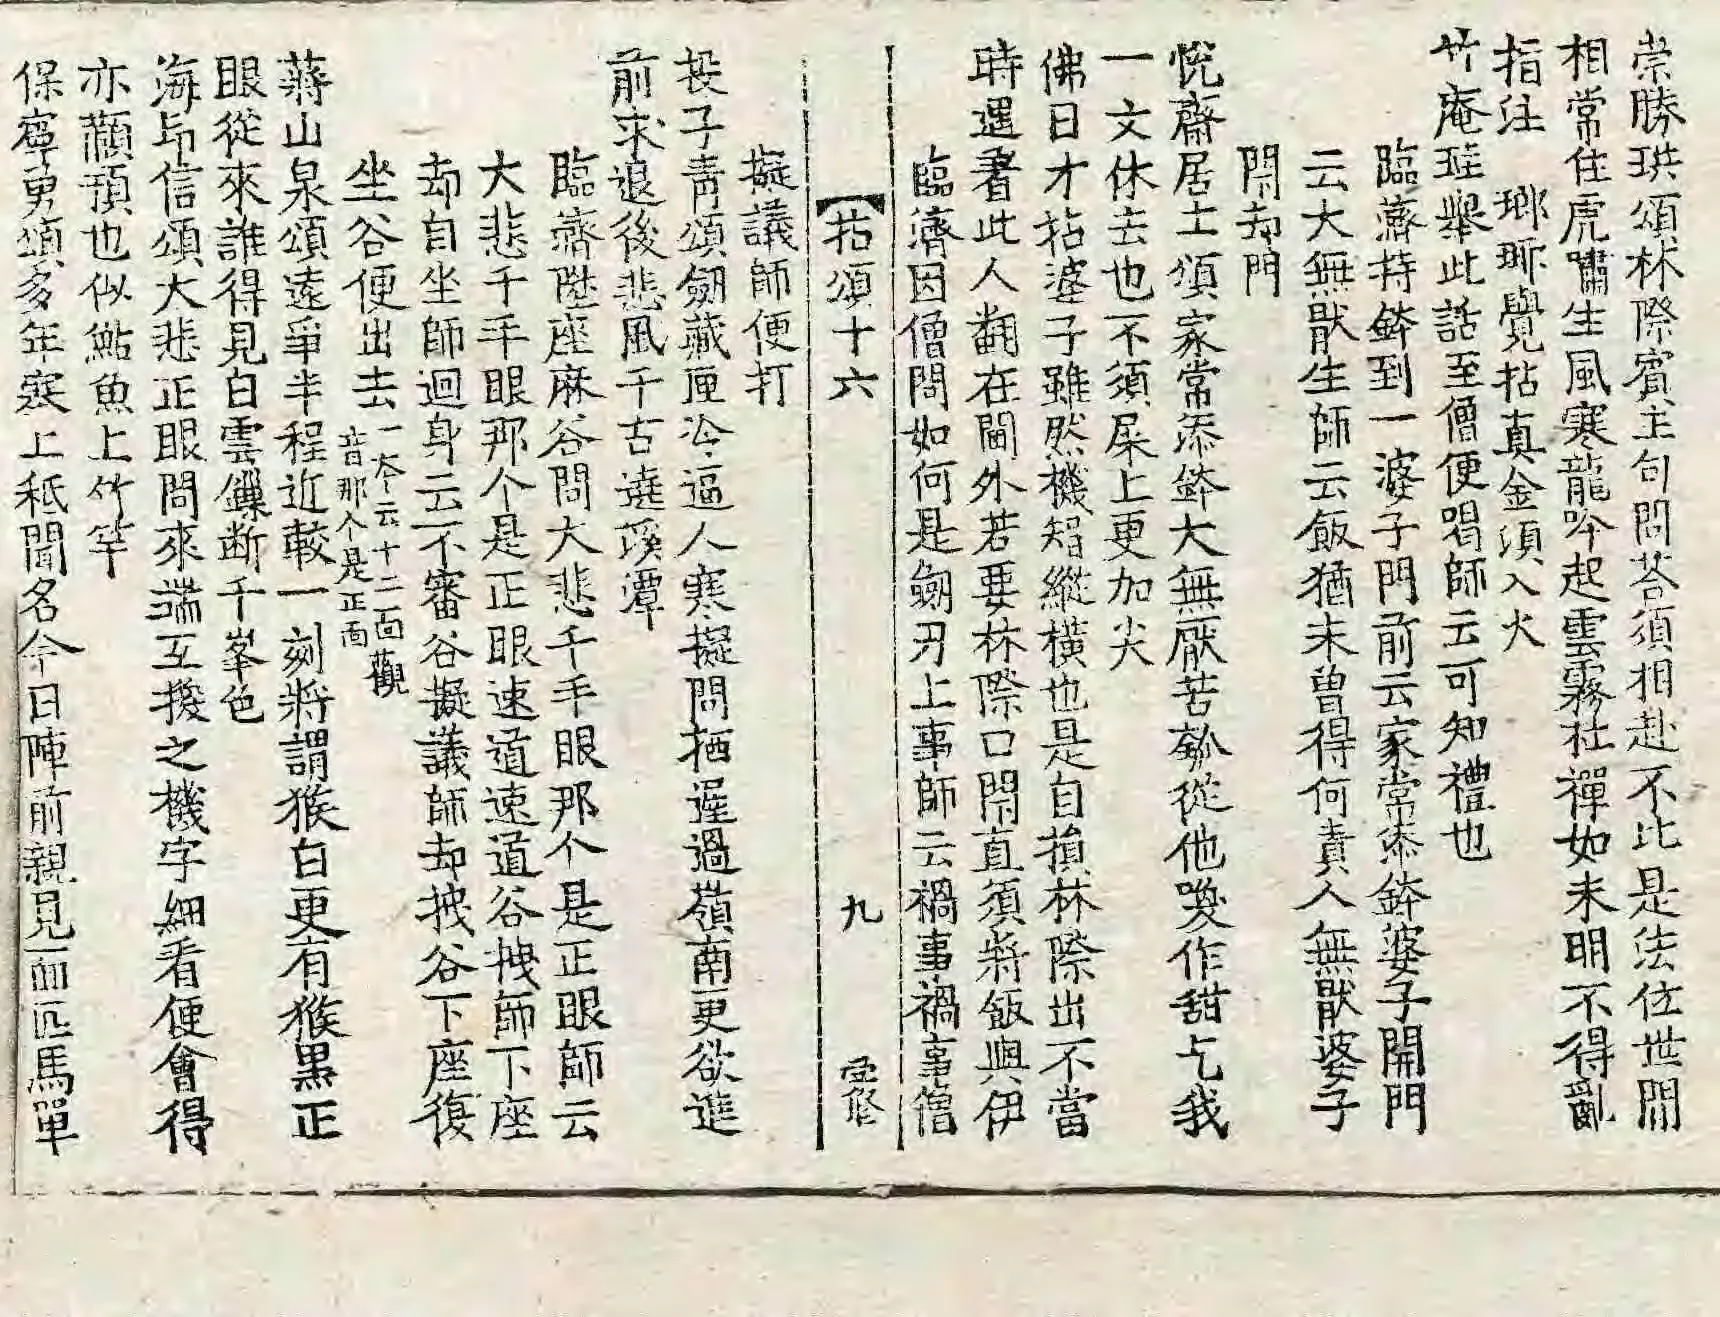 崇勝珙頌林際賓主句問荅須相赴不比是法位世間
相常住虎嘯生風寒龍吟起雲霧杜禪如未明不得亂
指注　瑯琊覺拈真金須入火
竹庵珪舉此話至僧便喝師云可知禮也
臨濟持鉢到一婆子門前云家常添鉢婆子開門
云大無猒生師云飯猶未曾得何責人無猒婆子
閇却門
悅齋居士頌家常添鉢大無厭苦瓠從他喚作甜乞我
一文休去也不須屎上更加尖
佛日才拈婆子雖然機智縱橫也是自損林際出不當
時遇著此人翻在閫外若要林際口閇直須將飯與伊
臨濟因僧問如何是劒刃上事師云禍事禍事僧
【拈頌十六　九
擬議師便打
投子靑頌劒藏匣冷逼人寒擬問栖遲過嶺南更欲進
前求退後悲風千古遶溪潭
臨濟陞座麻谷問大悲千手眼那个是正眼師云
大悲千手眼那个是正眼速道速道谷拽師下座
却自坐師迴身云不審谷擬議師却拽谷下座復
坐谷便出去一本云十二面觀
音那个是正面
蔣山泉頌遠爭半程近較一刻將謂猴白更有猴黑正
眼從來誰得見白雲鏁断千峯色
海印信頌大悲正眼問來端互換之機字細看便會得
亦顢頇也似鮎魚上竹竿
保寧勇頌多年寒上秖聞名今日陣前親見面匹馬單